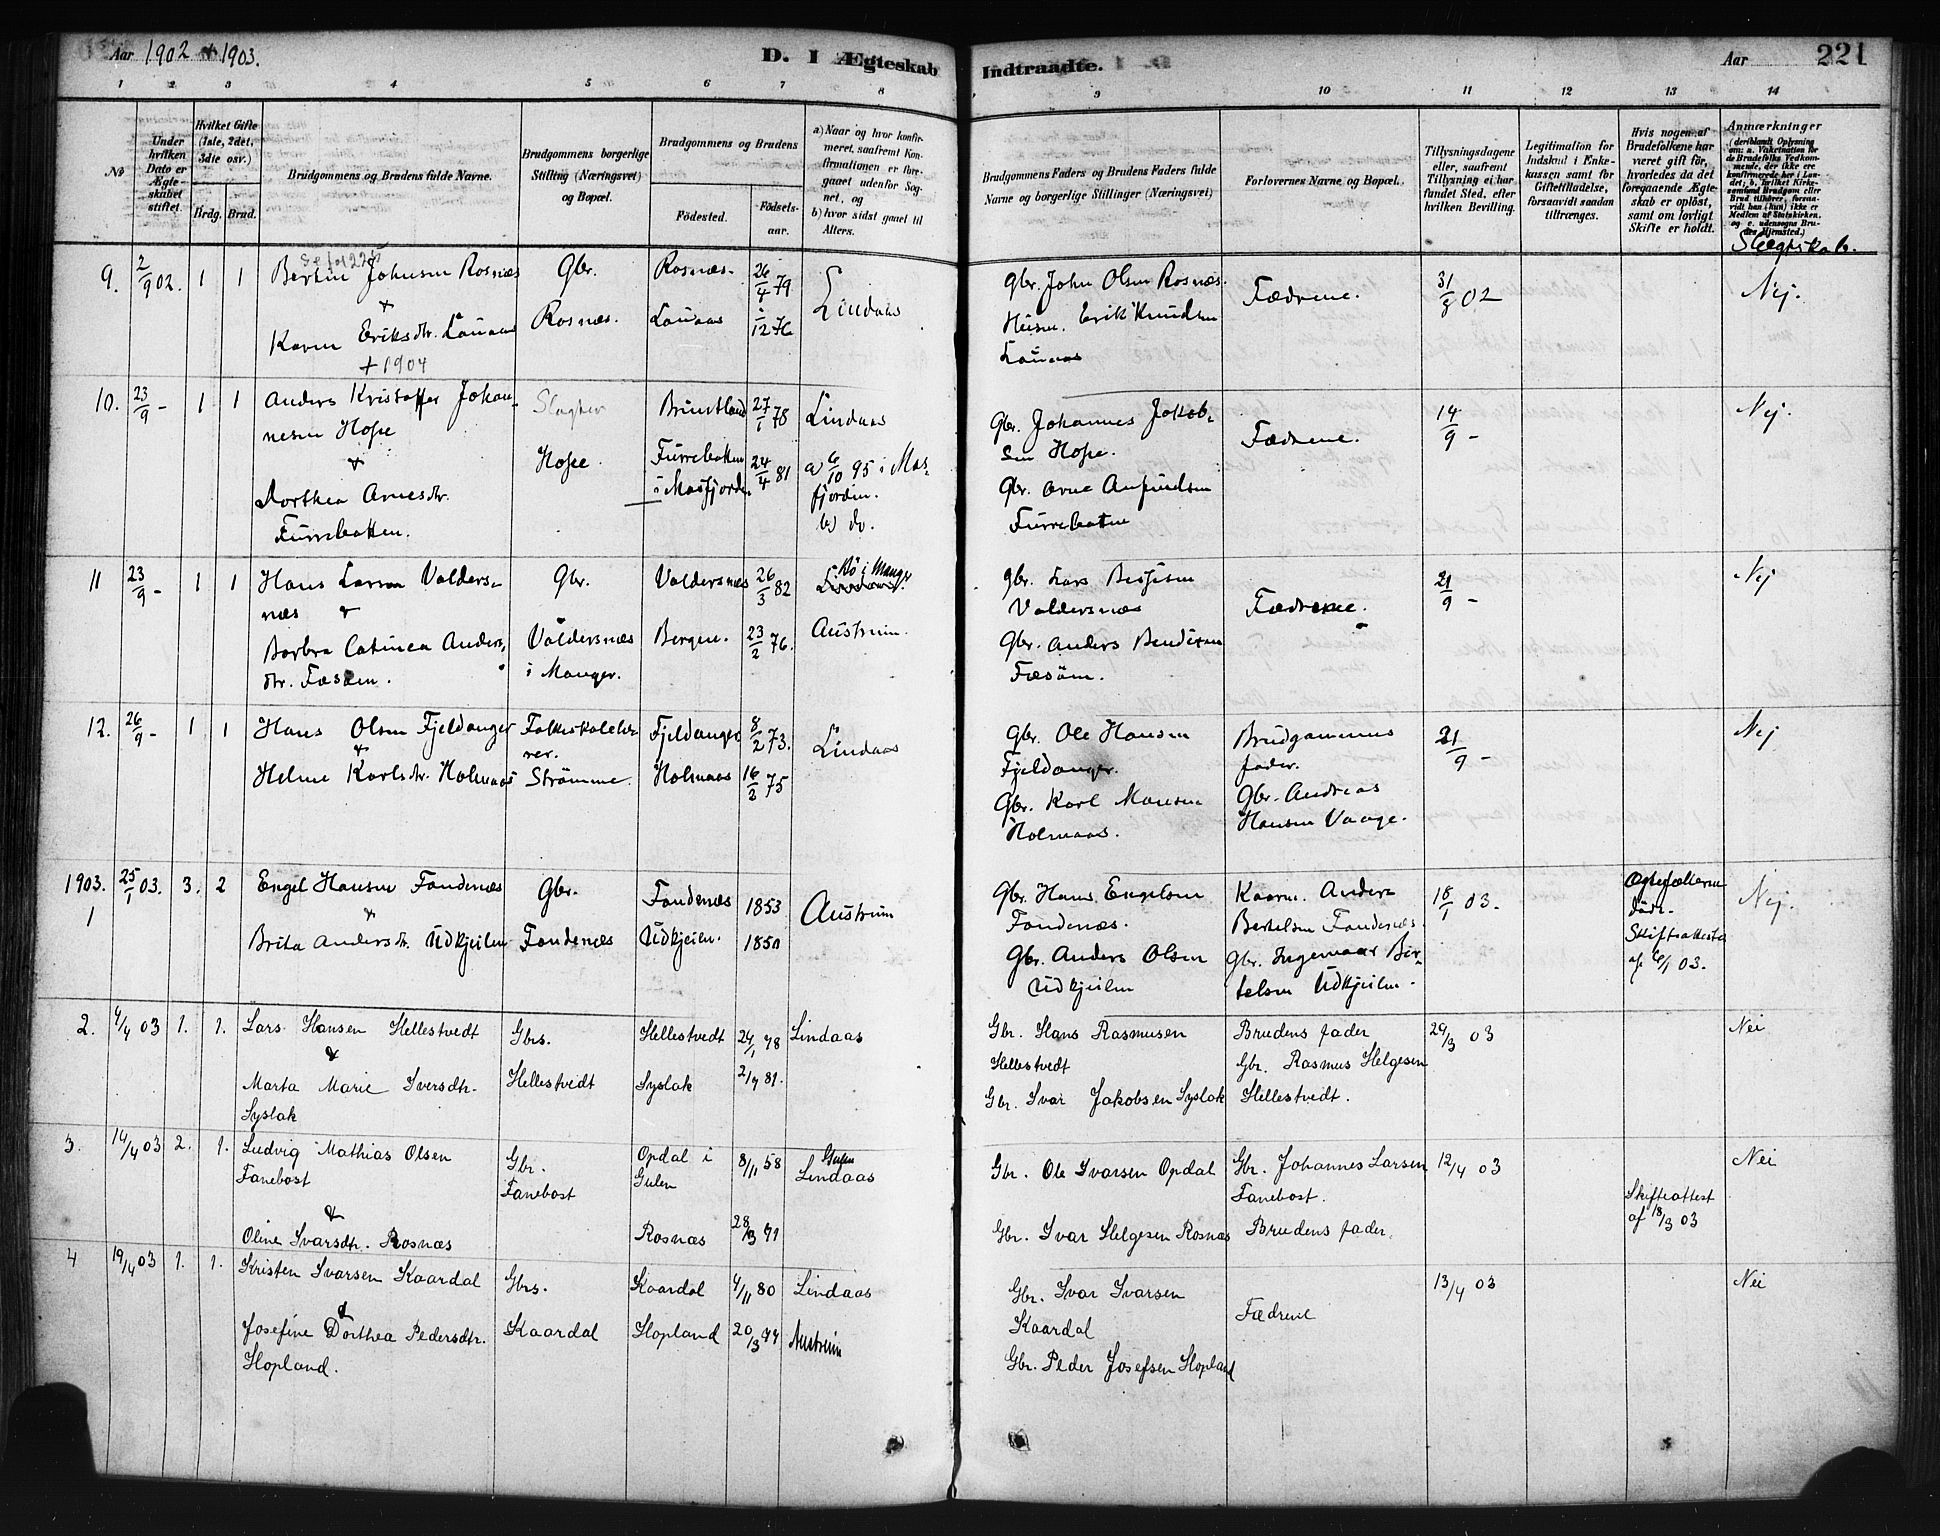 Aar 1902 + 1903.
D. I Ægteskab Indtraadte.
Aar
221
1 2 3 4 5 6 7 8 9 10 11 12 13 14
No
Under hvilken Dato er Ægteskabet stiftet.
Hvilket Gifte (1ste, 2det, 3die osv.)
Brdg. Brud.
Brudgommens og Brudens fulde Navne.
Brudgommens borgerlige Stilling (Næringsvei) og Bopæl.
Brudgommens og Brudens
Fødested. Fødselsaar.
a) Naar og hvor konfirmeret, saafremt Konfirmationen er foregaaet udenfor Sognet, og
b) hvor sidst gaaet til Alters.
Brudgommens Faders og Brudens Faders fulde Navne og borgerlige Stillinger (Næringsvei)
Forlovernes Navne og Bopæl.
Tillysningsdagene eller, saafremt Tillysning ei har fundet Sted, efter hvilken Bevilling.
Legitimation for Indskud i Enkekassen samt for Giftetilladelse, forsaavidt saadan tiltrænges.
Hvis nogen af Brudefolkene har været gift før, hvorledes da det foregaaende Ægteskab er opløst, samt om lovligt Skifte er holdt.
Anmærkninger
Slægtskab.
9. 2/9 02. 1 1 Bertin Johnsen Rosnæs Gbr. Rosnæs. 26/4 79 Lindaas Gbr. John Olsen Rosnæs. Fædrene. 31/8 02 Nej.
+
Karen Eriksdtr. Lauaas Rosnæs. Lauaas 1/12 76 Husm. Erik Knudsen
Lauaas
+ 1904
10. 23/9 - 1 1 Anders Kristoffer Johan- Slagter Bruntland 27/1 78 Lindaas Gbr. Johannes Jakob- Fædrene. 14/9 - Nej.
nesen Hope Hope. sen Hope.
+
Dorthea Arnesdtr. Furrebotten 24/4 81 a) 6/10 95 i Mas- Gbr. Arne Anfindsen
Furrebotten. i Masfjorden fjorden. Furrebotten
b) do.
11 23/9 - 1 1 Hans Larsen Valders- Gbr. Valdersnæs 26/3 82 Bø i Manger Lindaas Gbr. Lars Fædrene. 21/9 - Nej
næs + Valdersnæs
Barbra Catinca Anders- Valdersnæs Bergen. 23/2 76. Austrum. Gbr. Anders Bendixen
dtr. Fæsøen. i Manger. Fæsøen.
12. 26/9 - 1 1 Hans Olsen Fjeldanger Folkeskolelæ- Fjeldanger 8/2 73. Lindaas Gbr. Ole Hansen Brudgommens 21/9 - Nej
+ rer. Fjeldanger. fader.
Helene Karlsdtr. Holmaas Strømme. Holmaas 16/2 75 Gbr. Karl Monsen Gbr. Andreas
Holmaas. Hansen Vaage.
1903. 25/1 03. 3. 2 Engel Hansen Fondenæs Gbr. Fondenæs 1853 Austrum Gbr. Hans Engelsen Kaarm. Anders 18/1 03. Ægtefællerne Nej.
1 + Fondenæs. Bertelsen Fondenæs. døde.
Brita Andersdtr. Udkjeilen Fondenæs Udkjeilen. 1850 Gbr. Anders Olsen Gbr. Ingemaar Ber- Skifteattester
Udkjeilen telsen Udkjeilen. af 6/1 03.
2. 4/4 03 1. 1. Lars Hansen Hellestvedt Gbrs. Hellestvedt 24/1 78 Lindaas Gbr. Hans Rasmusen Brudens fader 29/3 03 Nei
& Hellestvedt Gbr. Rasmus Helgesen
Marta Marie Iversdtr. Hellestvedt Syslak 2/7 81. Gbr. Ivar Jakobsen Syslak Hellestvedt.
Syslak
3. 14/4 03 2. 1. Ludvig Mathias Olsen Gbr. Opdal i 8/11 58 Gulen Lindaas Gbr. Ole Ivarsen Opdal Gbr. Johannes Larsen 12/4 03 Nei
Fanebost Fanebost Gulen Fanebost. Skifteattest
& af 18/3 03
Oline Ivarsdtr. Rosnæs Rosnæs 28/3 71 Gbr. Ivar Helgesen Rosnæs Brudens fader.
4 19/4 03 1. 1. Kristen Ivarsen Kaardal Gbrs. Kaardal 4/11 80 Lindaas Gbr. Ivar Ivarsen Fædrene 13/4 03 Nei
& Kaardal
Josefine Dorthea Pedersdtr. Kaardal Hopland 20/3 77 Austreim Gbr. Peder Josefsen Hopland
Hopland.